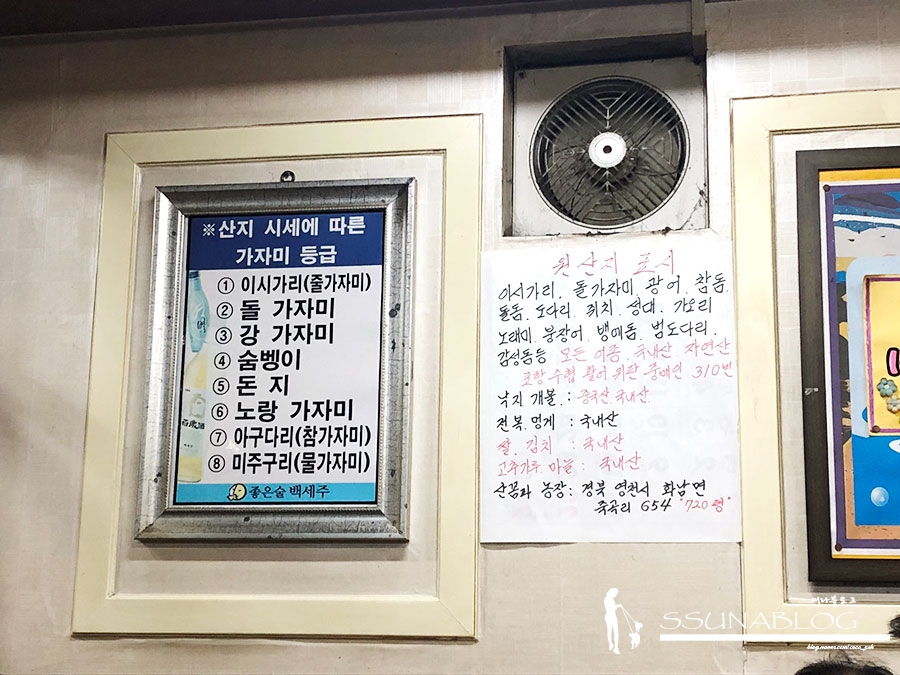 ※산지 시세에 따른
가자미 등급
① 이시가리(줄가자미)
② 돌 가자미
③ 강 가자미
④ 숨벵이
⑤ 돈 지
⑥ 노랑 가자미
⑦ 아구다리(참가자미)
⑧ 미주구리(물가자미)
좋은술 백세주
원산지 표시
이시가리. 돌가자미. 광어. 참돔.
돌돔. 도다리. 쥐치. 성대. 가오리
노래미. 붕장어. 뱅에돔. 범도다리.
감성돔등 모든 어종. 국내산. 자연산
포항수협 활어 위판 중매인 310번
낙지 개불 : 중국산 국내산
전복. 멍게 : 국내산
쌀. 김치 : 국내산
고추가루 마늘 : 국내산
산꿈과 농장: 경북 영천시 화남면
죽곡리 654 "720평"
SSUNABLOG